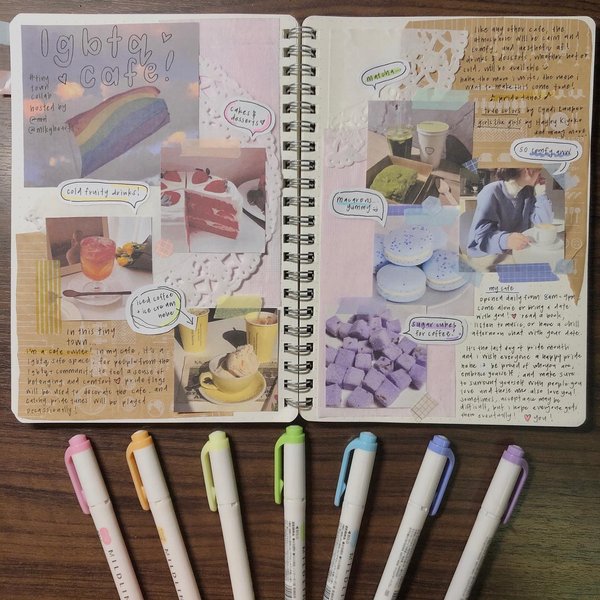 lgbtq
café!
#tiny
town
collab
hosted by
@mii
cakes &
desserts ♡
cold fruity drinks!
iced coffee
+ ice cream
hehe
in this tiny
town...
i'm a cafe owner! in my cafe, it's a
lgbtq+ safe space, for people from the
lgbtq+ community to feel a sense of
belonging and comfort ♡ pride flags
will be used to decorate the cafe, and
catchy pride tunes will be played
occasionally!
like any other cafe, the
atmosphere will be calm and
comfy, and aesthetic af!
drinks & desserts, whether hot or
cold, will be available
♪ pride tunes ♪
true colors by Cyndi Lauper
girls like girls by Hayley Kiyoko
and many more
matcha~
so comfy
macarons
yummy
sugar cubes
for coffee!
my cafe
opened daily from 8am - 9pm
come alone or bring a date
with you! ♡ read a book,
listen to music, or have a chill
afternoon chat with your date.
it's the last day of pride month
and i wish everyone a happy pride
be proud of who you are,
embrace yourself, and make sure
to surround yourself with people you
love and those who also love you!
sometimes, acceptance may be
difficult, but i hope everyone gets
them eventually! ♡ you!
MILDLIN
MILDLIN